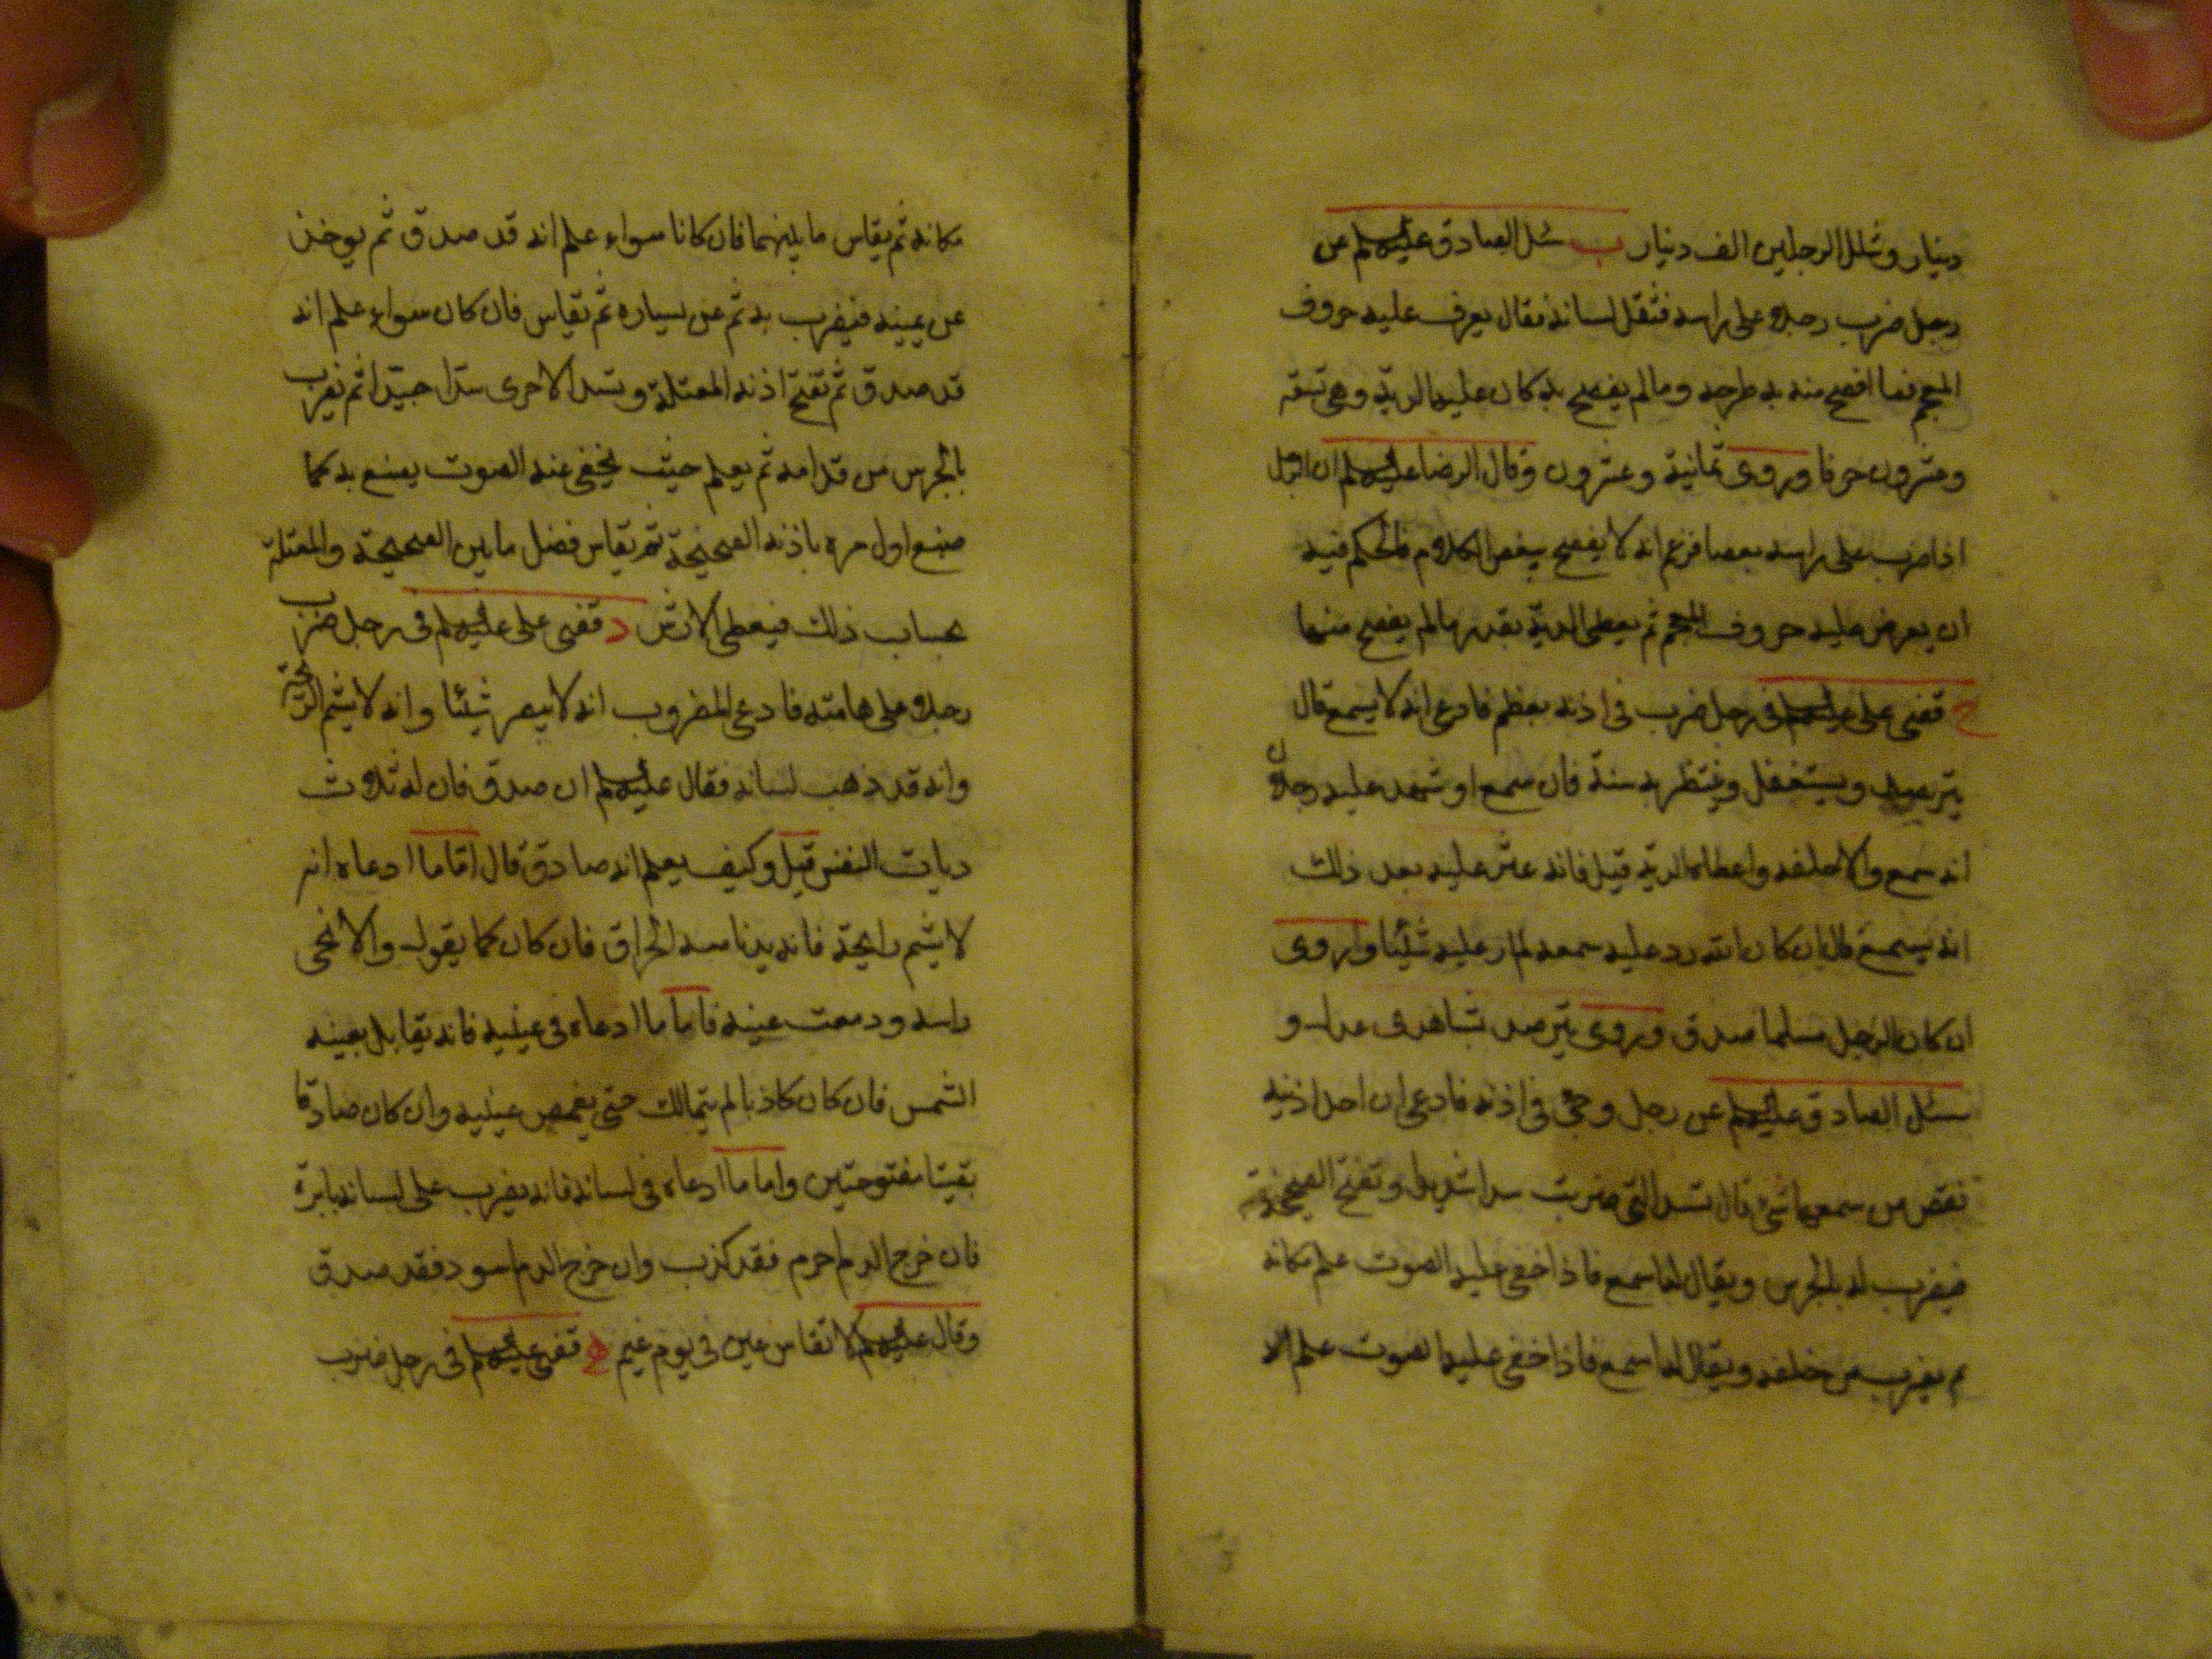 دينار وشلل الرجلين الف دينار ب سئل الصادق عليه السلم عن
رجل ضرب رجلا على راسه فثقل لسانه فقال يعرف عليه حروف
المعجم فما افصح منه به طرحه وما لم يفصح به كان عليه الدية وهي تسعة
وعشرون حرفا وروى ثمانية وعشرون وقال الرضا عليه السلم ان الرجل
اذا ضرب على راسه بعصا فزعم انه لا يفصح ببعض الكلام فالحكم فيه
ان يعرض عليه حروف المعجم ثم يعطى الدية بقدر ما لم يفصح منها
ج قضى على عليه السلم فى رجل ضرب فى اذنه بعظم فادعى انه لا يسمع قال
يترصد ويستغفل وينتظر به سنة فان سمع او شهد عليه رجلان
انه سمع والا حلفه واعطاه الدية قيل فانه عثر عليه بعد ذلك
انه يسمع قال ان كان الله رد عليه سمعه لم ار عليه شيئا وروى
ان كان الرجل مسلما صدق وروى يترصد بشاهدى عدل و
سئل الصادق عليه السلم عن رجل وجئ فى اذنه فادعى ان احد اذنيه
نقص من سمعها شئ قال تسد التى ضربت سدا شديدا وتفتح الصحيحة
فيضرب له بالجرس ويقال له اسمع فاذا خفى عليه الصوت علم مكانه
ثم يضرب من خلفه ويقال له اسمع فاذا خفى عليه الصوت علم
مكانه ثم يقاس ما بينهما فان كانا سواء علم انه قد صدق ثم يوخذ
عن يمينه فيضرب به ثم عن يساره ثم يقاس فان كان سواء علم انه
قد صدق ثم تفتح اذنه المعتلة وتسد الاخرى سدا جيدا ثم يضرب
بالجرس من قدامه ثم يعلم حيث يخفى عنه الصوت يصنع به كما
صنع اول مرة باذنه الصحيحة ثم يقاس فضل ما بين الصحيحة والمعتلة
بحساب ذلك فيعطى الارش د قضى على عليه السلم فى رجل ضرب
رجلا على هامته فادعى المضروب انه لا يبصر شيئا وانه لا يشم الرائحة
وانه قد ذهب لسانه فقال عليه السلم ان صدق فان له ثلاث
ديات النفس قيل وكيف يعلم انه صادق قال اما ما ادعاه انه
لا يشم رائحة فانه يدنا منه الحراق فان كان كما يقول والا نحى
راسه ودمعت عينه فاما ما ادعاه فى عينيه فانه يقابل بعينه
الشمس فان كان كاذبا لم يتمالك حتى يغمض عينيه وان كان صادقا
بقيتا مفتوحتين واما ما ادعاه فى لسانه فانه يضرب على لسانه بابرة
فان خرج الدم احمر فقد كذب وان خرج الدم اسود فقد صدق
وقال عليه السلم لا تقاس عين فى يوم غيم ه قضى عليه السلم فى رجل ضرب